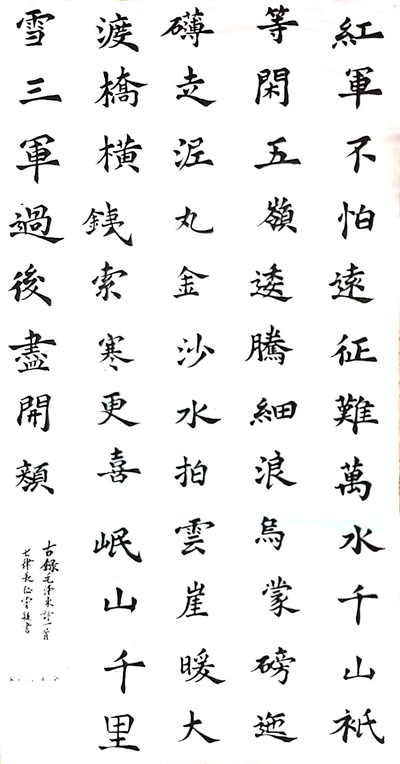 紅軍不怕遠征難萬水千山衹
等閑五嶺逶騰細浪烏蒙磅迤
礴走泥丸金沙水拍雲崖暖大
渡橋橫銕索寒更喜岷山千里
雪三軍過後盡開顏
錄毛澤東詩一首
七律長征書